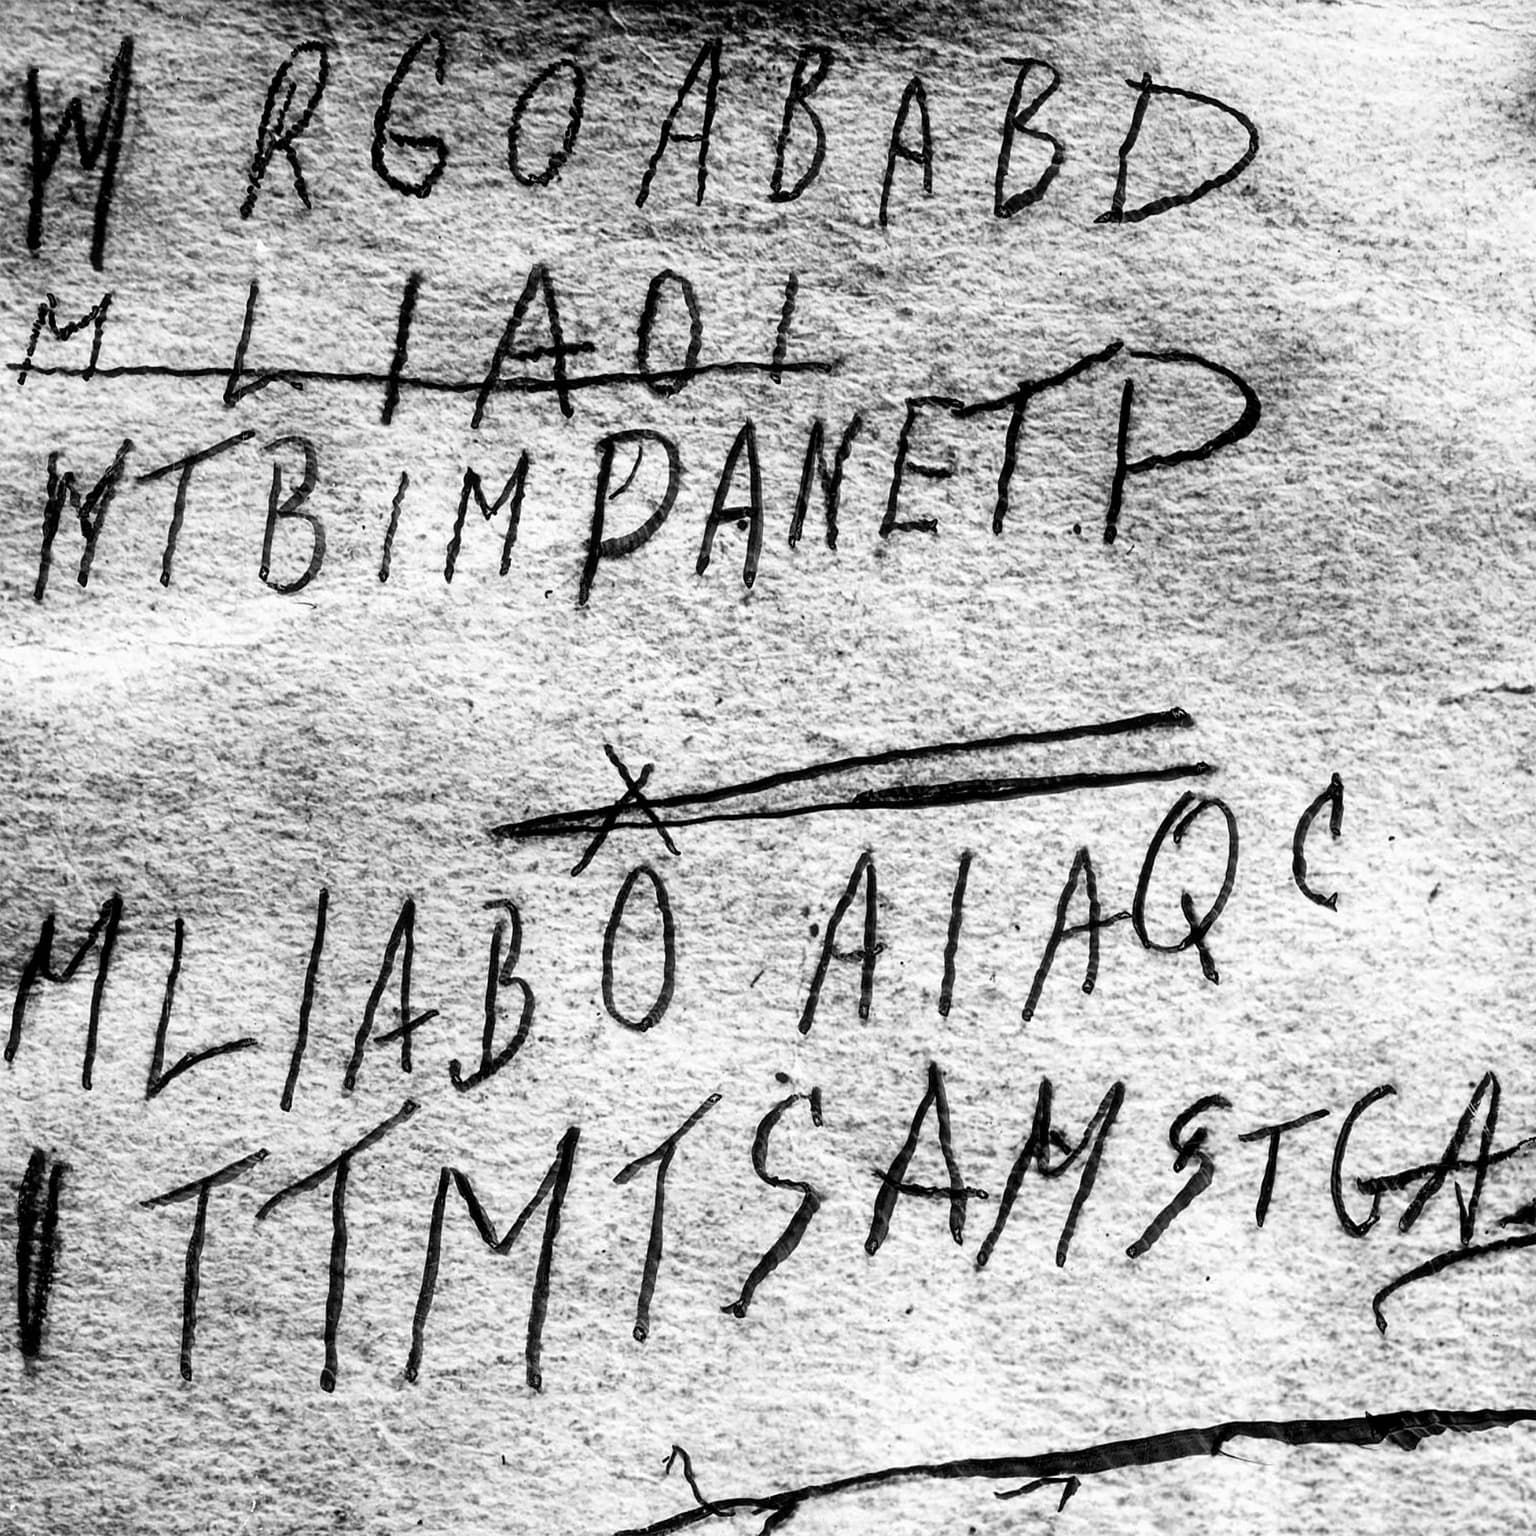 W RGOABABD
MLIAOI
WTBIMPANETP
MLIABO AIAQC
ITTMTSAMSTGA